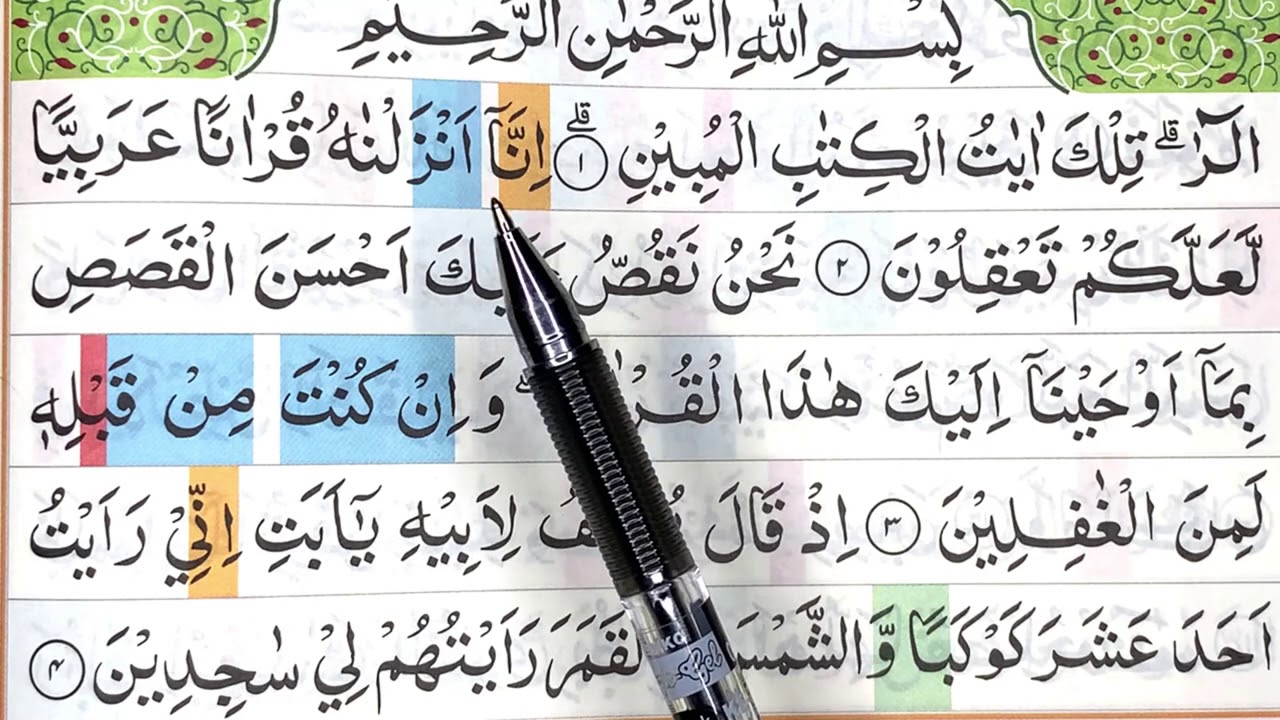 بِسْمِ اللّٰهِ الرَّحْمٰنِ الرَّحِيْمِ
الٓرٰ ۗ تِلْكَ اٰيٰتُ الْكِتٰبِ الْمُبِيْنِ ۗ ١ اِنَّآ اَنْزَلْنٰهُ قُرْاٰنًا عَرَبِيًّا
لَّعَلَّكُمْ تَعْقِلُوْنَ ٢ نَحْنُ نَقُصُّ اَحْسَنَ الْقَصَصِ
بِمَآ اَوْحَيْنَآ اِلَيْكَ هٰذَا وَاِنْ كُنْتَ مِنْ قَبْلِهٖ
لَمِنَ الْغٰفِلِيْنَ ٣ اِذْ قَالَ لِاَبِيْهِ يٰٓاَبَتِ اِنِّيْ رَاَيْتُ
اَحَدَ عَشَرَ كَوْكَبًا وَّالشَّمْسَ رَاَيْتُهُمْ لِيْ سٰجِدِيْنَ ٤